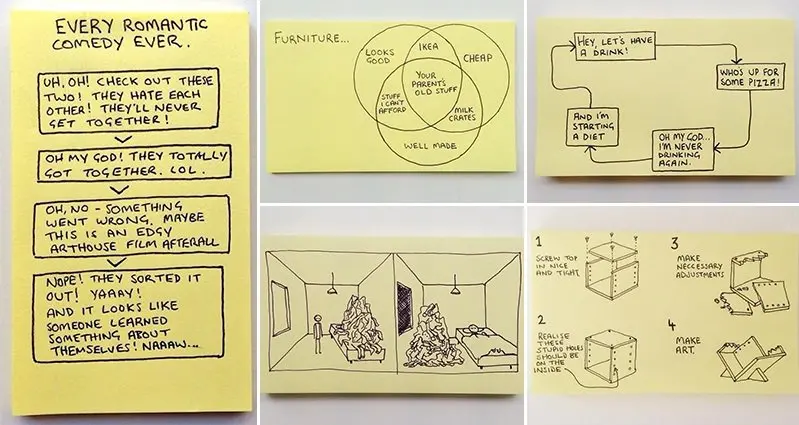 EVERY ROMANTIC
COMEDY EVER.
UH, OH! CHECK OUT THESE
TWO! THEY HATE EACH
OTHER! THEY'LL NEVER
GET TOGETHER!
OH MY GOD! THEY TOTALLY
GOT TOGETHER. LOL.
OH, NO - SOMETHING
WENT WRONG. MAYBE
THIS IS AN EDGY
ARTHOUSE FILM AFTERALL
NOPE! THEY SORTED IT
OUT! YAAAY!
AND IT LOOKS LIKE
SOMEONE LEARNED
SOMETHING ABOUT
THEMSELVES! NAAAW...
FURNITURE...
LOOKS
GOOD
IKEA
CHEAP
YOUR
PARENT'S
OLD STUFF
STUFF
I CAN'T
AFFORD
MILK
CRATES
WELL MADE
HEY, LET'S HAVE
A DRINK!
WHO'S UP FOR
SOME PIZZA!
OH MY GOD...
I'M NEVER
DRINKING
AGAIN.
AND I'M
STARTING
A DIET
1
SCREW TOP
IN NICE
AND TIGHT.
2
REALISE
THESE
STUPID HOLES
SHOULD BE
ON THE
INSIDE
3
MAKE
NECCESSARY
ADJUSTMENTS
4
MAKE
ART.